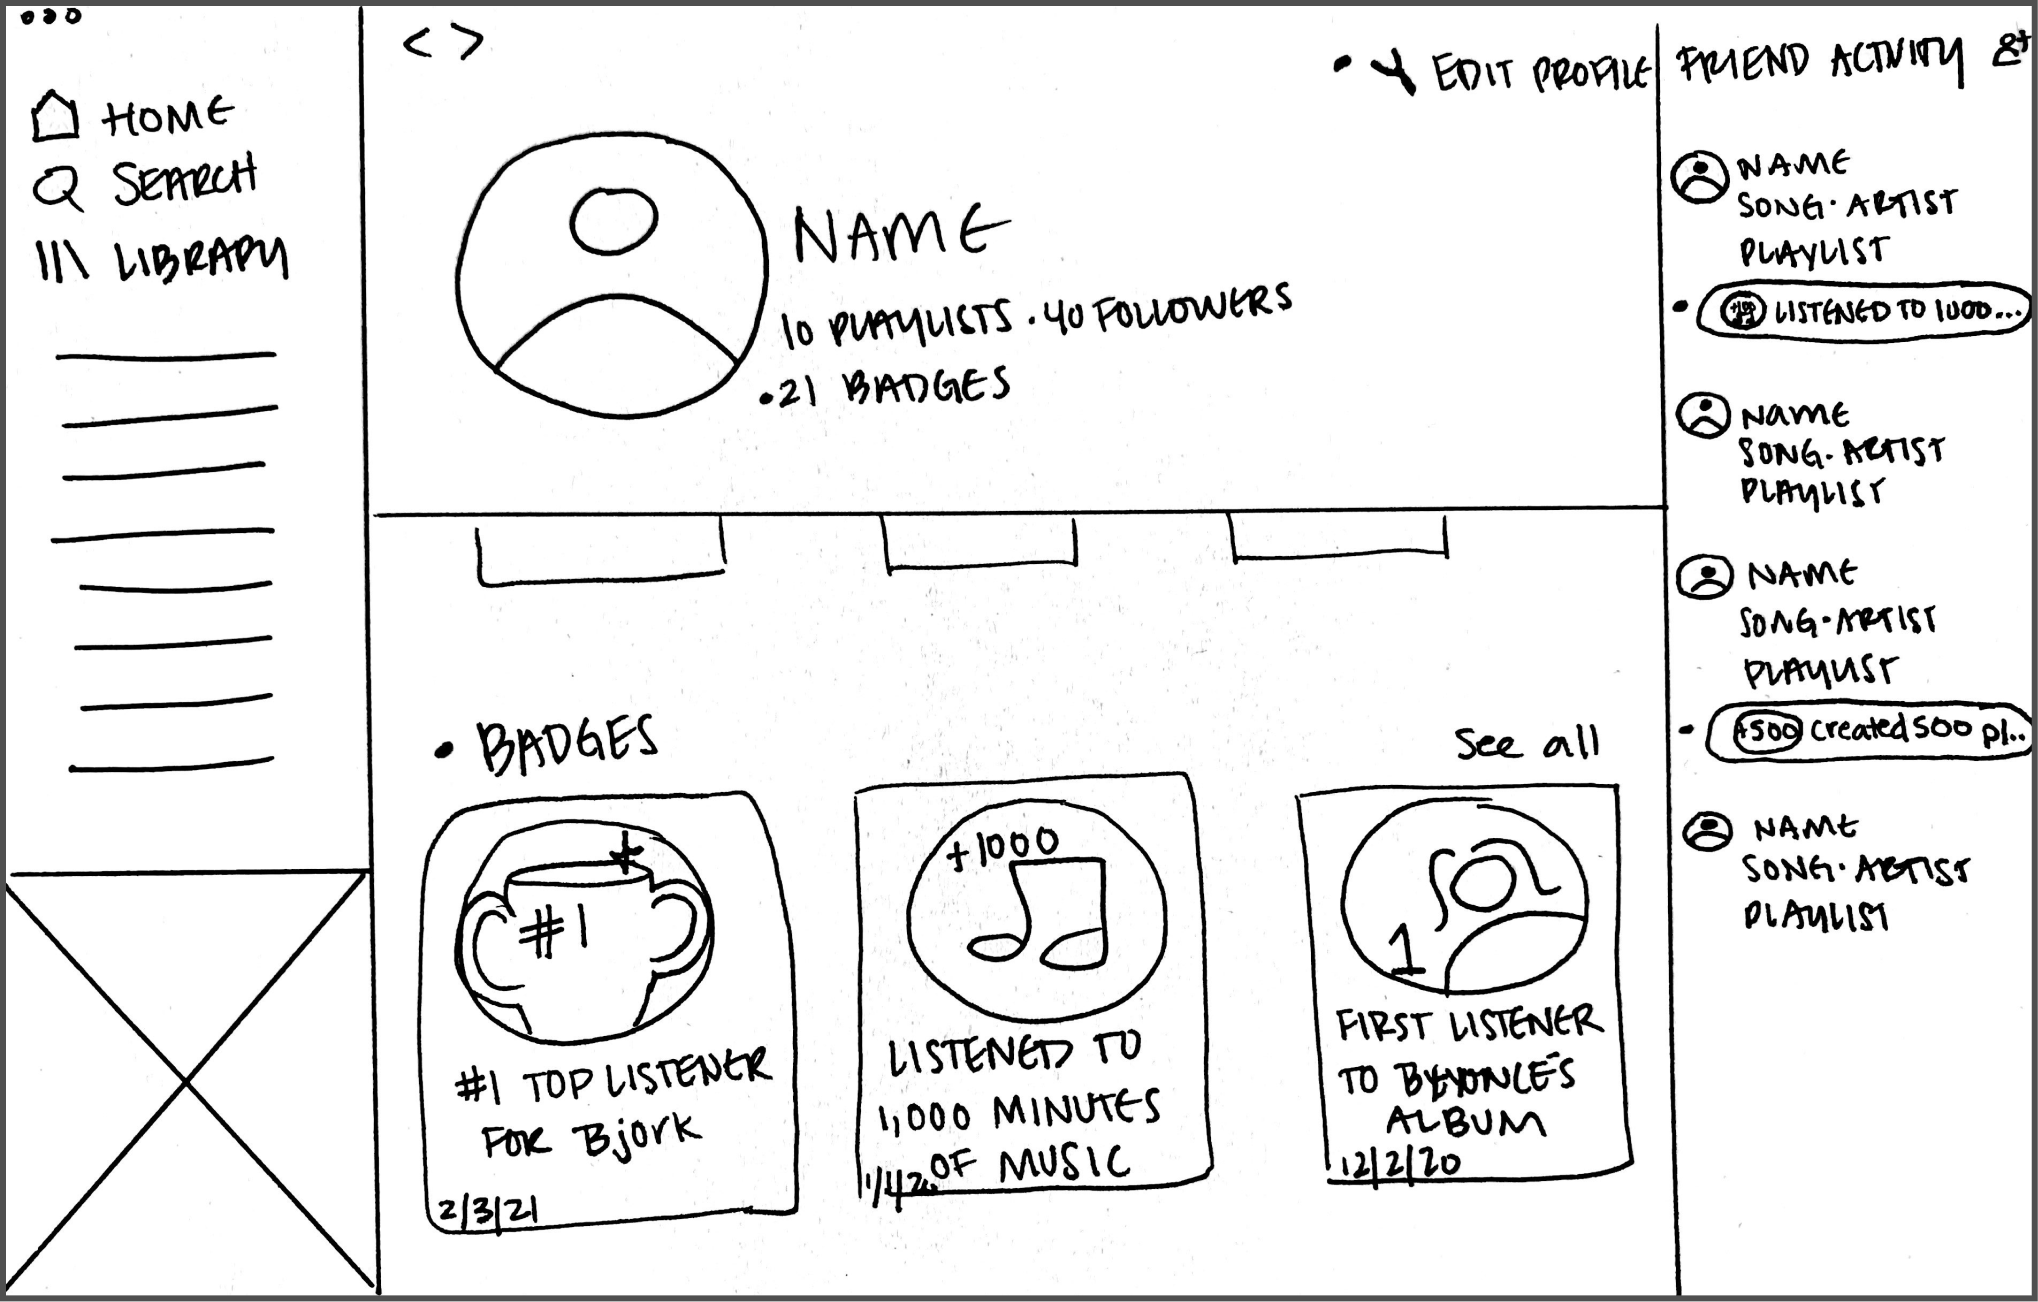 HOME
SEARCH
LIBRARY
< >
EDIT PROFILE
NAME
10 PLAYLISTS · 40 FOLLOWERS
• 21 BADGES
• BADGES
See all
#1
#1 TOP LISTENER
FOR Bjork
2/3/21
+1000
LISTENED TO
1,000 MINUTES
OF MUSIC
1
FIRST LISTENER
TO BEYONCE'S
ALBUM
12/2/20
FRIEND ACTIVITY
NAME
SONG · ARTIST
PLAYLIST
LISTENED TO 1000...
NAME
SONG · ARTIST
PLAYLIST
NAME
SONG · ARTIST
PLAYLIST
+500 Created 500 pl..
NAME
SONG · ARTIST
PLAYLIST